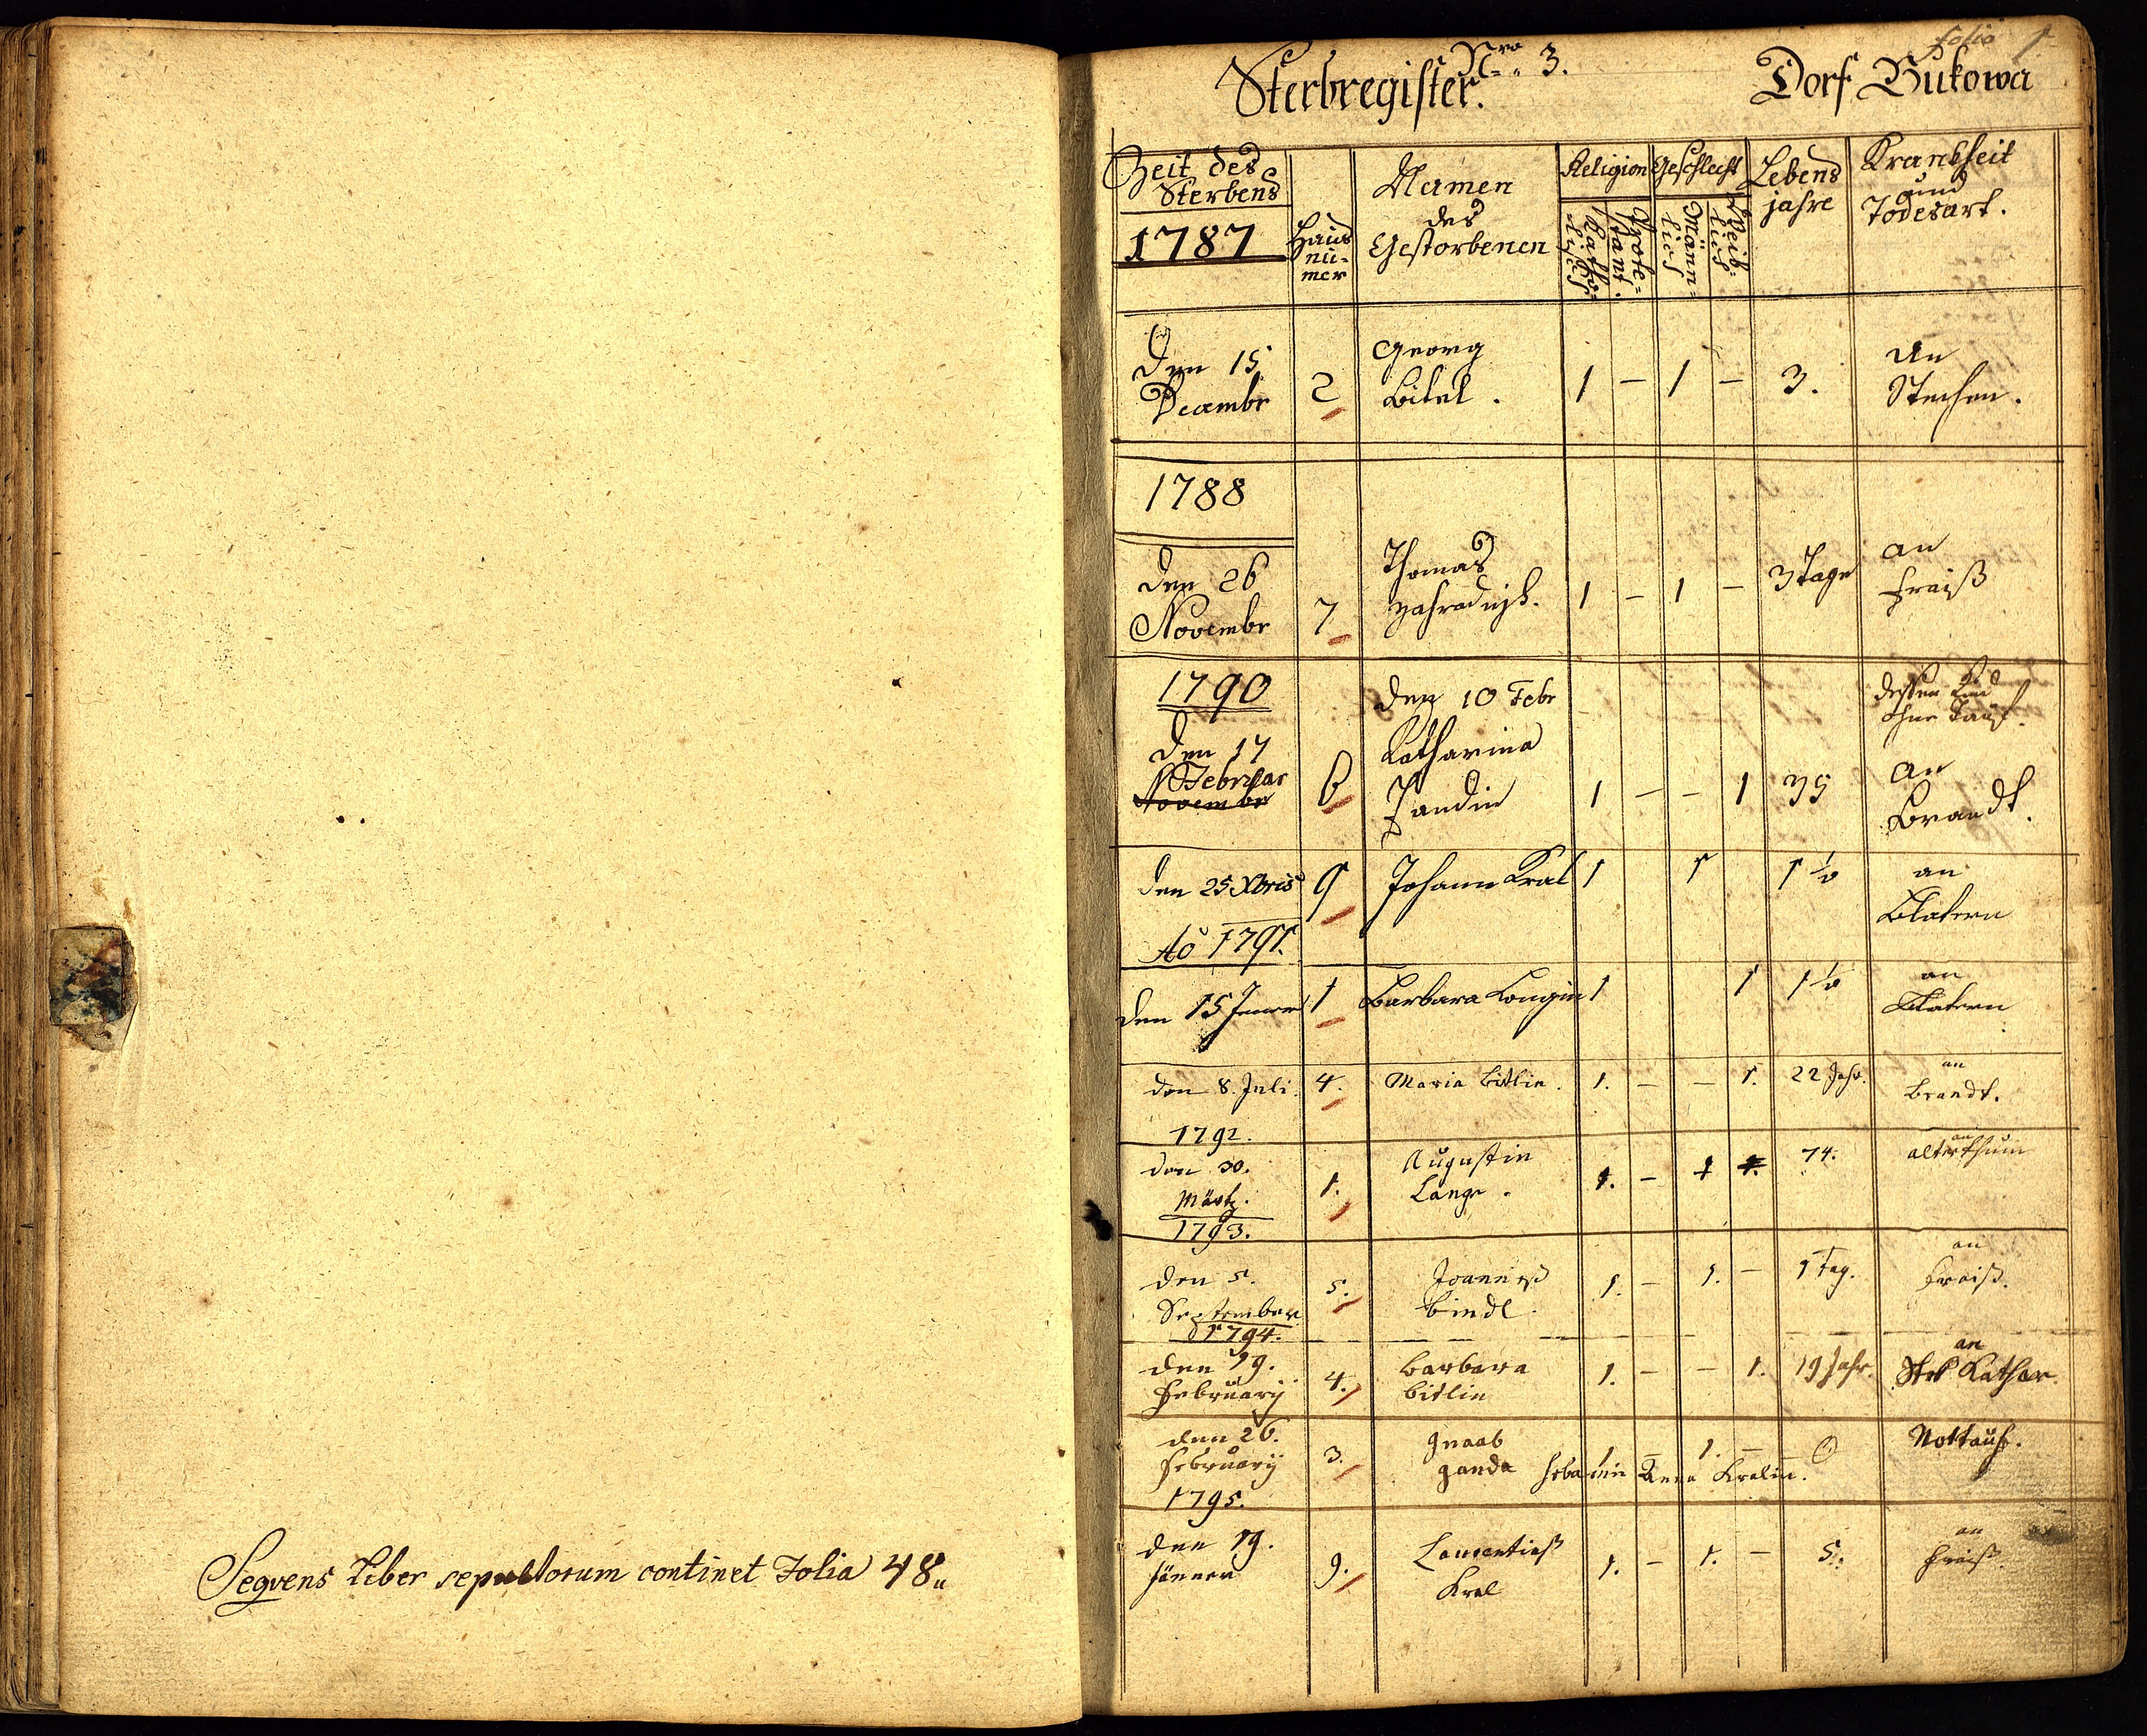 Segvens Liber sepultorum continet Folia 48„
folio 1
Nro 3.
Sterbregister. Dorf Bukowa
Zeit des Sterbens
1787
Haus nu-mer
Namen des Gestorbenen
Religion
Katho-lisch
Prote-stant.
Geschlecht
Männ-lich
Weib-lich
Lebens jahre
Krankheit und Todesart.
Den 15 Georg An
Decembr 2 Bitel . 1 – 1 – 3. Stechen.
1788
den 26 Thomas 3 Tage an
Novembr 7 1 – 1 – Fraiß
1790 den 10 Febr dessen Kind
ohne Tauf.
Den 17 Katharina
Februar 6 Jandin 1 – – 1 35 an
Novembr Brandt.
den 25 Xbris 9 Johann Kral 1 1 1 ½ an
Blatern
Aõ 1791.
den 15 Jener 1 Barbara Langin 1 1 1 ½ an
Blatern
den 8. Juli. 4. Maria Bitlin. 1. – – 1. 22 Jahr. an
Brandt.
1792.
den 30. Augustin 74. an
Märtz. 1. Lange. 1. – 1 1. alterthum
1793.
den 5. Joanneß an
September 5. bindl. 1. – 1. – 1 Tag. Fraiß.
1794.
den 19. Barbara an
February 4. bitlin 1. – – 1. 19 Jahr. Stek Kathar.
den 26. Gnaab
February 3. Janda 1. – 1. – 0 Nottauf.
hebamin Anna Kralin.
1795.
den 19. Laurentieß an
Jänner 9. Kral 1. – 1. – 5. fraiß.